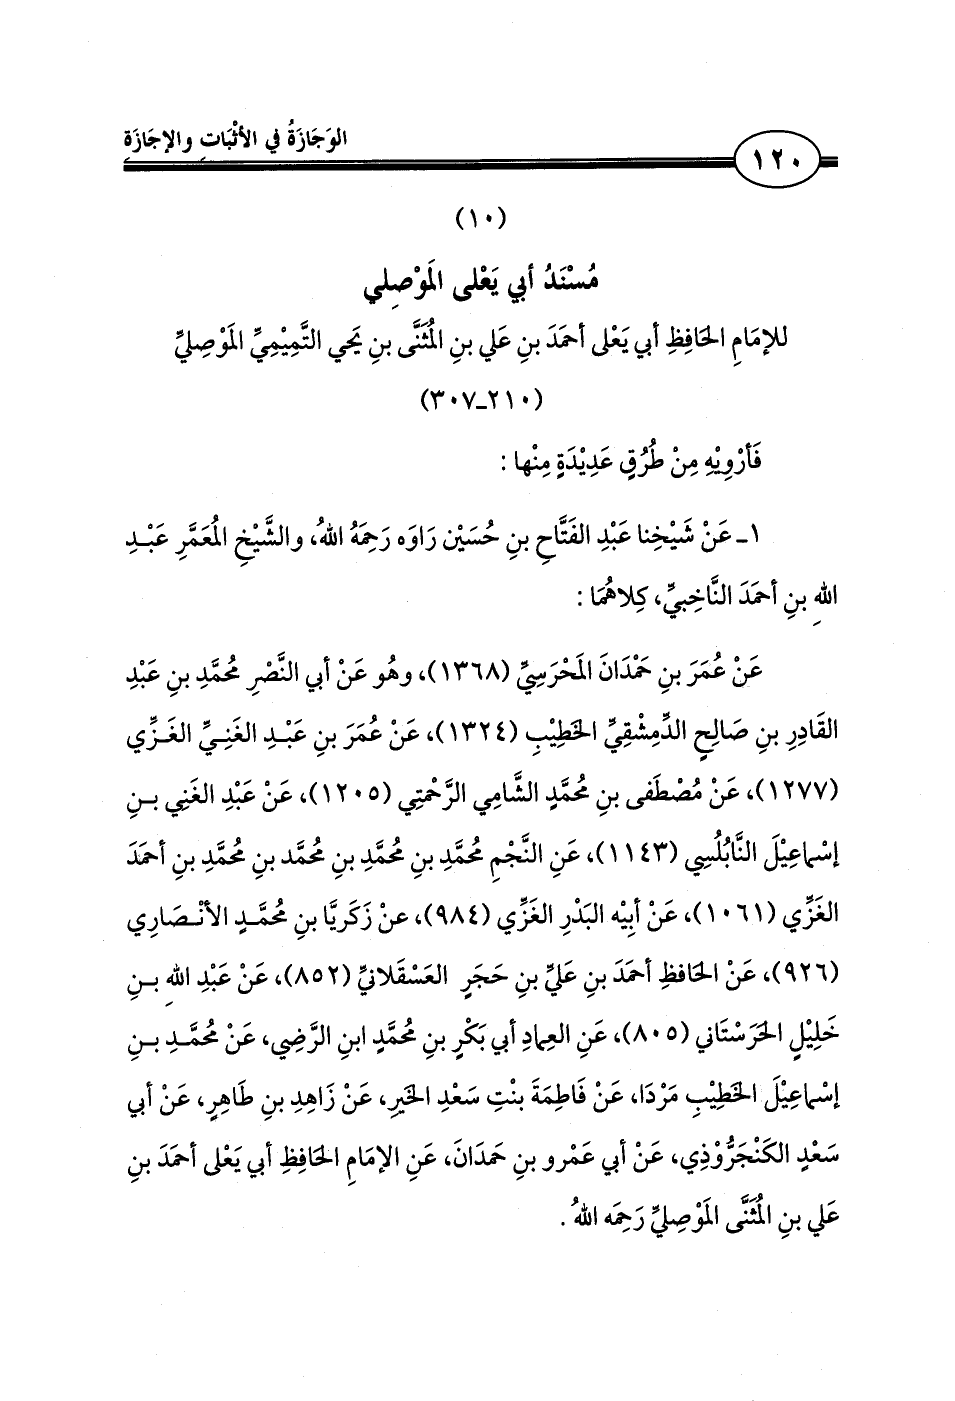 الوَجَازَةُ في الأثْبَاتِ والإجَازَةِ
١٢٠
(١٠)
مُسْنَدُ أبي يَعْلى المَوْصِلي
للإمَامِ الحَافِظِ أبي يَعْلى أحمَدَ بنِ عَلي بنِ المُثَنَّى بنِ يَحيي التَّمِيْمِيِّ المَوْصِليِّ
(٢١٠ـ٣٠٧)
فَأرْوِيْهِ مِنْ طُرُقٍ عَدِيْدَةٍ مِنْها :
١ـ عَنْ شَيْخِنا عَبْدِ الفَتَّاحِ بنِ حُسَيْن رَاوَه رَحِمَهُ اللهُ، والشَّيْخِ المُعَمَّرِ عَبْـدِ
اللهِ بنِ أحمَدَ النَّاخِبيِّ، كِلاهُمَا :
عَنْ عُمَرَ بنِ حَمْدَانَ المَحْرَسِيِّ (١٣٦٨)، وهُو عَنْ أبي النَّصْرِ مُحمَّدِ بنِ عَبْدِ
القَادِرِ بنِ صَالِحٍ الدِّمِشْقِيِّ الخَطِيْبِ (١٣٢٤)، عَنْ عُمَرَ بنِ عَبْـدِ الغَنِـيِّ الغَـزِّي
(١٢٧٧)، عَنْ مُصْطَفى بنِ مُحمَّدٍ الشَّامي الرَّحْمَتِي (١٢٠٥)، عَنْ عَبْدِ الغَنِي بـنِ
إسْماعِيْلَ النَّابُلْسِي (١١٤٣)، عَنِ النَّجْمِ مُحمَّدِ بنِ مُحمَّدِ بنِ مُحمَّد بنِ مُحمَّدِ بنِ أحمَدَ
الغَزِّي (١٠٦١)، عَنْ أبِيْه البَدْرِ الغَزِّي (٩٨٤)، عنْ زَكَرِيَّا بنِ مُحمَّـدٍ الأنْـصَارِي
(٩٢٦)، عَنْ الحَافظِ أحمَدَ بنِ عَليِّ بنِ حَجَرٍ العَسْقَلانيِّ (٨٥٢)، عَنْ عَبْدِ اللهِ بـنِ
خَلِيْلٍ الحَرَسْتَاني (٨٠٥)، عَنِ العِمادِ أبي بَكْرِ بنِ مُحمَّدٍ ابنِ الرَّضِي، عَنْ مُحمَّـدِ بـنِ
إسْماعِيْلَ الخَطِيْبِ مَرْدَا، عَنْ فَاطِمَةَ بنْتِ سَعْدِ الخَيرِ، عَنْ زَاهِدِ بنِ طَاهِرٍ، عَنْ أبي
سَعْدٍ الكَنْجَرُّوْذِي، عَنْ أبي عَمْرو بنِ حَمدَانَ، عَنِ الإمَامِ الحَافِظِ أبي يَعْلى أحمَدَ بنِ
عَلي بنِ المُثَنَّى المَوْصِليِّ رَحِمَه اللهُ .